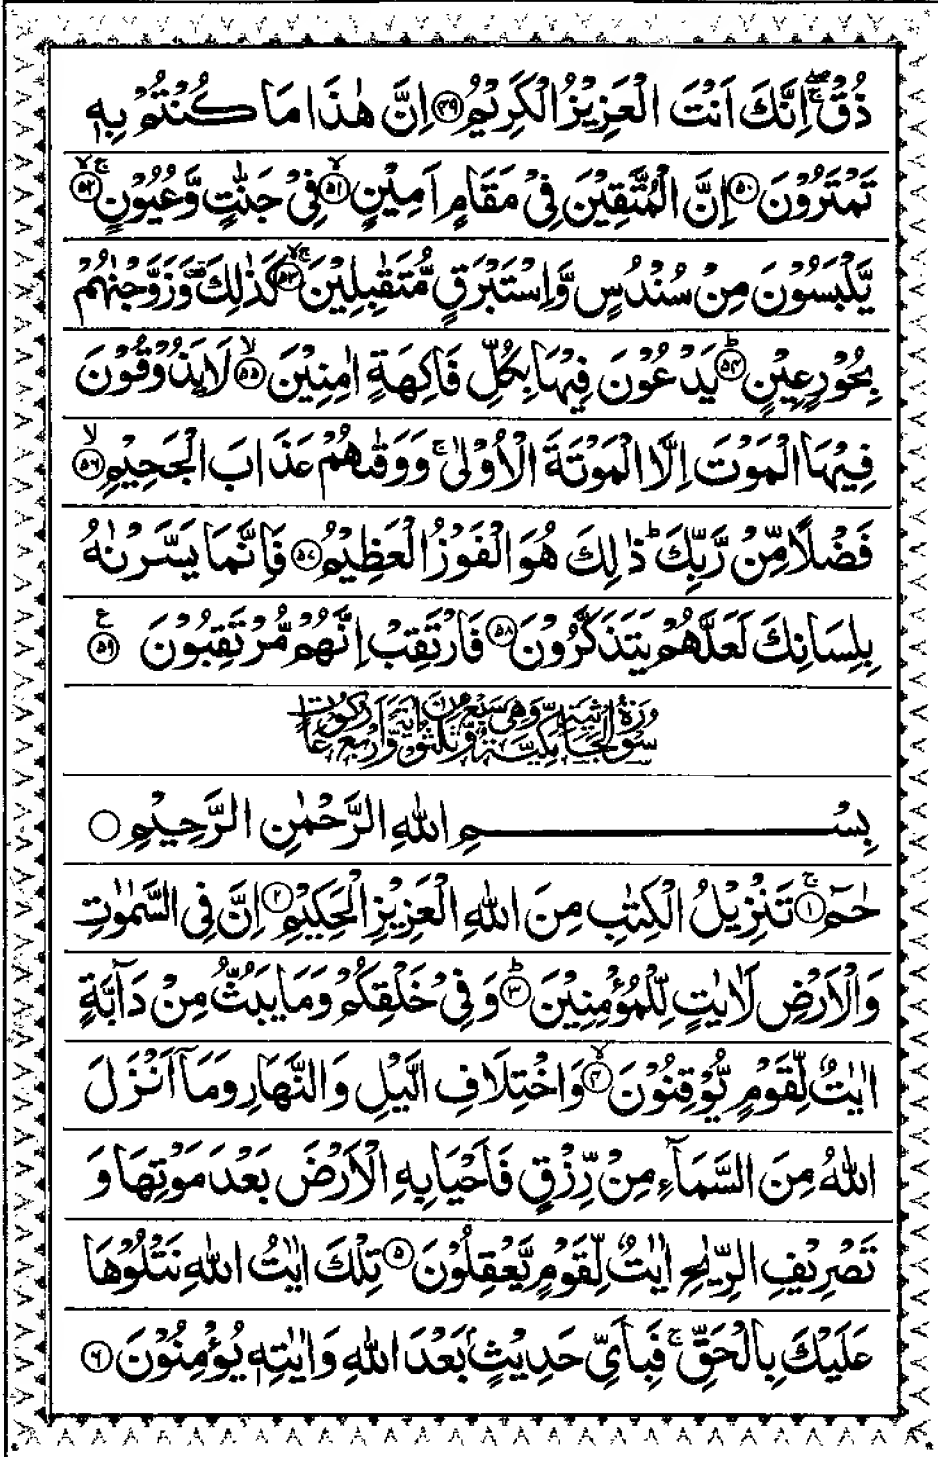 ذُقْ ۚۙ اِنَّكَ اَنْتَ الْعَزِيْزُ الْكَرِيْمُ ﴿۴۹﴾ اِنَّ هٰذَا مَا كُنْتُمْ بِهٖ
تَمْتَرُوْنَ ﴿۵۰﴾ اِنَّ الْمُتَّقِيْنَ فِيْ مَقَامٍ اَمِيْنٍ ﴿۵۱﴾ۙ فِيْ جَنّٰتٍ وَّعُيُوْنٍ ﴿۵۲﴾ۚۙ
يَّلْبَسُوْنَ مِنْ سُنْدُسٍ وَّاِسْتَبْرَقٍ مُّتَقٰبِلِيْنَ ﴿۵۳﴾ۚۙ كَذٰلِكَ ۫ وَزَوَّجْنٰهُمْ
بِحُوْرٍ عِيْنٍ ﴿۵۴﴾ؕ يَدْعُوْنَ فِيْهَا بِكُلِّ فَاكِهَةٍ اٰمِنِيْنَ ﴿۵۵﴾ۙ لَا يَذُوْقُوْنَ
فِيْهَا الْمَوْتَ اِلَّا الْمَوْتَةَ الْاُوْلٰى ۚ وَوَقٰىهُمْ عَذَابَ الْجَحِيْمِ ﴿۵۶﴾ۙ
فَضْلًا مِّنْ رَّبِّكَ ؕ ذٰلِكَ هُوَ الْفَوْزُ الْعَظِيْمُ ﴿۵۷﴾ فَاِنَّمَا يَسَّرْنٰهُ
بِلِسَانِكَ لَعَلَّهُمْ يَتَذَكَّرُوْنَ ﴿۵۸﴾ فَارْتَقِبْ اِنَّهُمْ مُّرْتَقِبُوْنَ ﴿۵۹﴾ ع
سُوْرَةُ الْجَاثِيَةِ مَكِّيَّةٌ وَّهِيَ سَبْعٌ وَّثَلٰثُوْنَ اٰيَةً وَّاَرْبَعُ رُكُوْعَاتٍ
بِسْمِ اللّٰهِ الرَّحْمٰنِ الرَّحِيْمِ ○
حٰمٓ ﴿۱﴾ۚ تَنْزِيْلُ الْكِتٰبِ مِنَ اللّٰهِ الْعَزِيْزِ الْحَكِيْمِ ﴿۲﴾ اِنَّ فِي السَّمٰوٰتِ
وَالْاَرْضِ لَاٰيٰتٍ لِّلْمُؤْمِنِيْنَ ﴿۳﴾ؕ وَفِيْ خَلْقِكُمْ وَمَا يَبُثُّ مِنْ دَآبَّةٍ
اٰيٰتٌ لِّقَوْمٍ يُّوْقِنُوْنَ ﴿۴﴾ۙ وَاخْتِلَافِ الَّيْلِ وَالنَّهَارِ وَمَآ اَنْزَلَ
اللّٰهُ مِنَ السَّمَآءِ مِنْ رِّزْقٍ فَاَحْيَا بِهِ الْاَرْضَ بَعْدَ مَوْتِهَا وَ
تَصْرِيْفِ الرِّيٰحِ اٰيٰتٌ لِّقَوْمٍ يَّعْقِلُوْنَ ﴿۵﴾ تِلْكَ اٰيٰتُ اللّٰهِ نَتْلُوْهَا
عَلَيْكَ بِالْحَقِّ ۚ فَبِاَيِّ حَدِيْثٍۢ بَعْدَ اللّٰهِ وَاٰيٰتِهٖ يُؤْمِنُوْنَ ﴿۶﴾